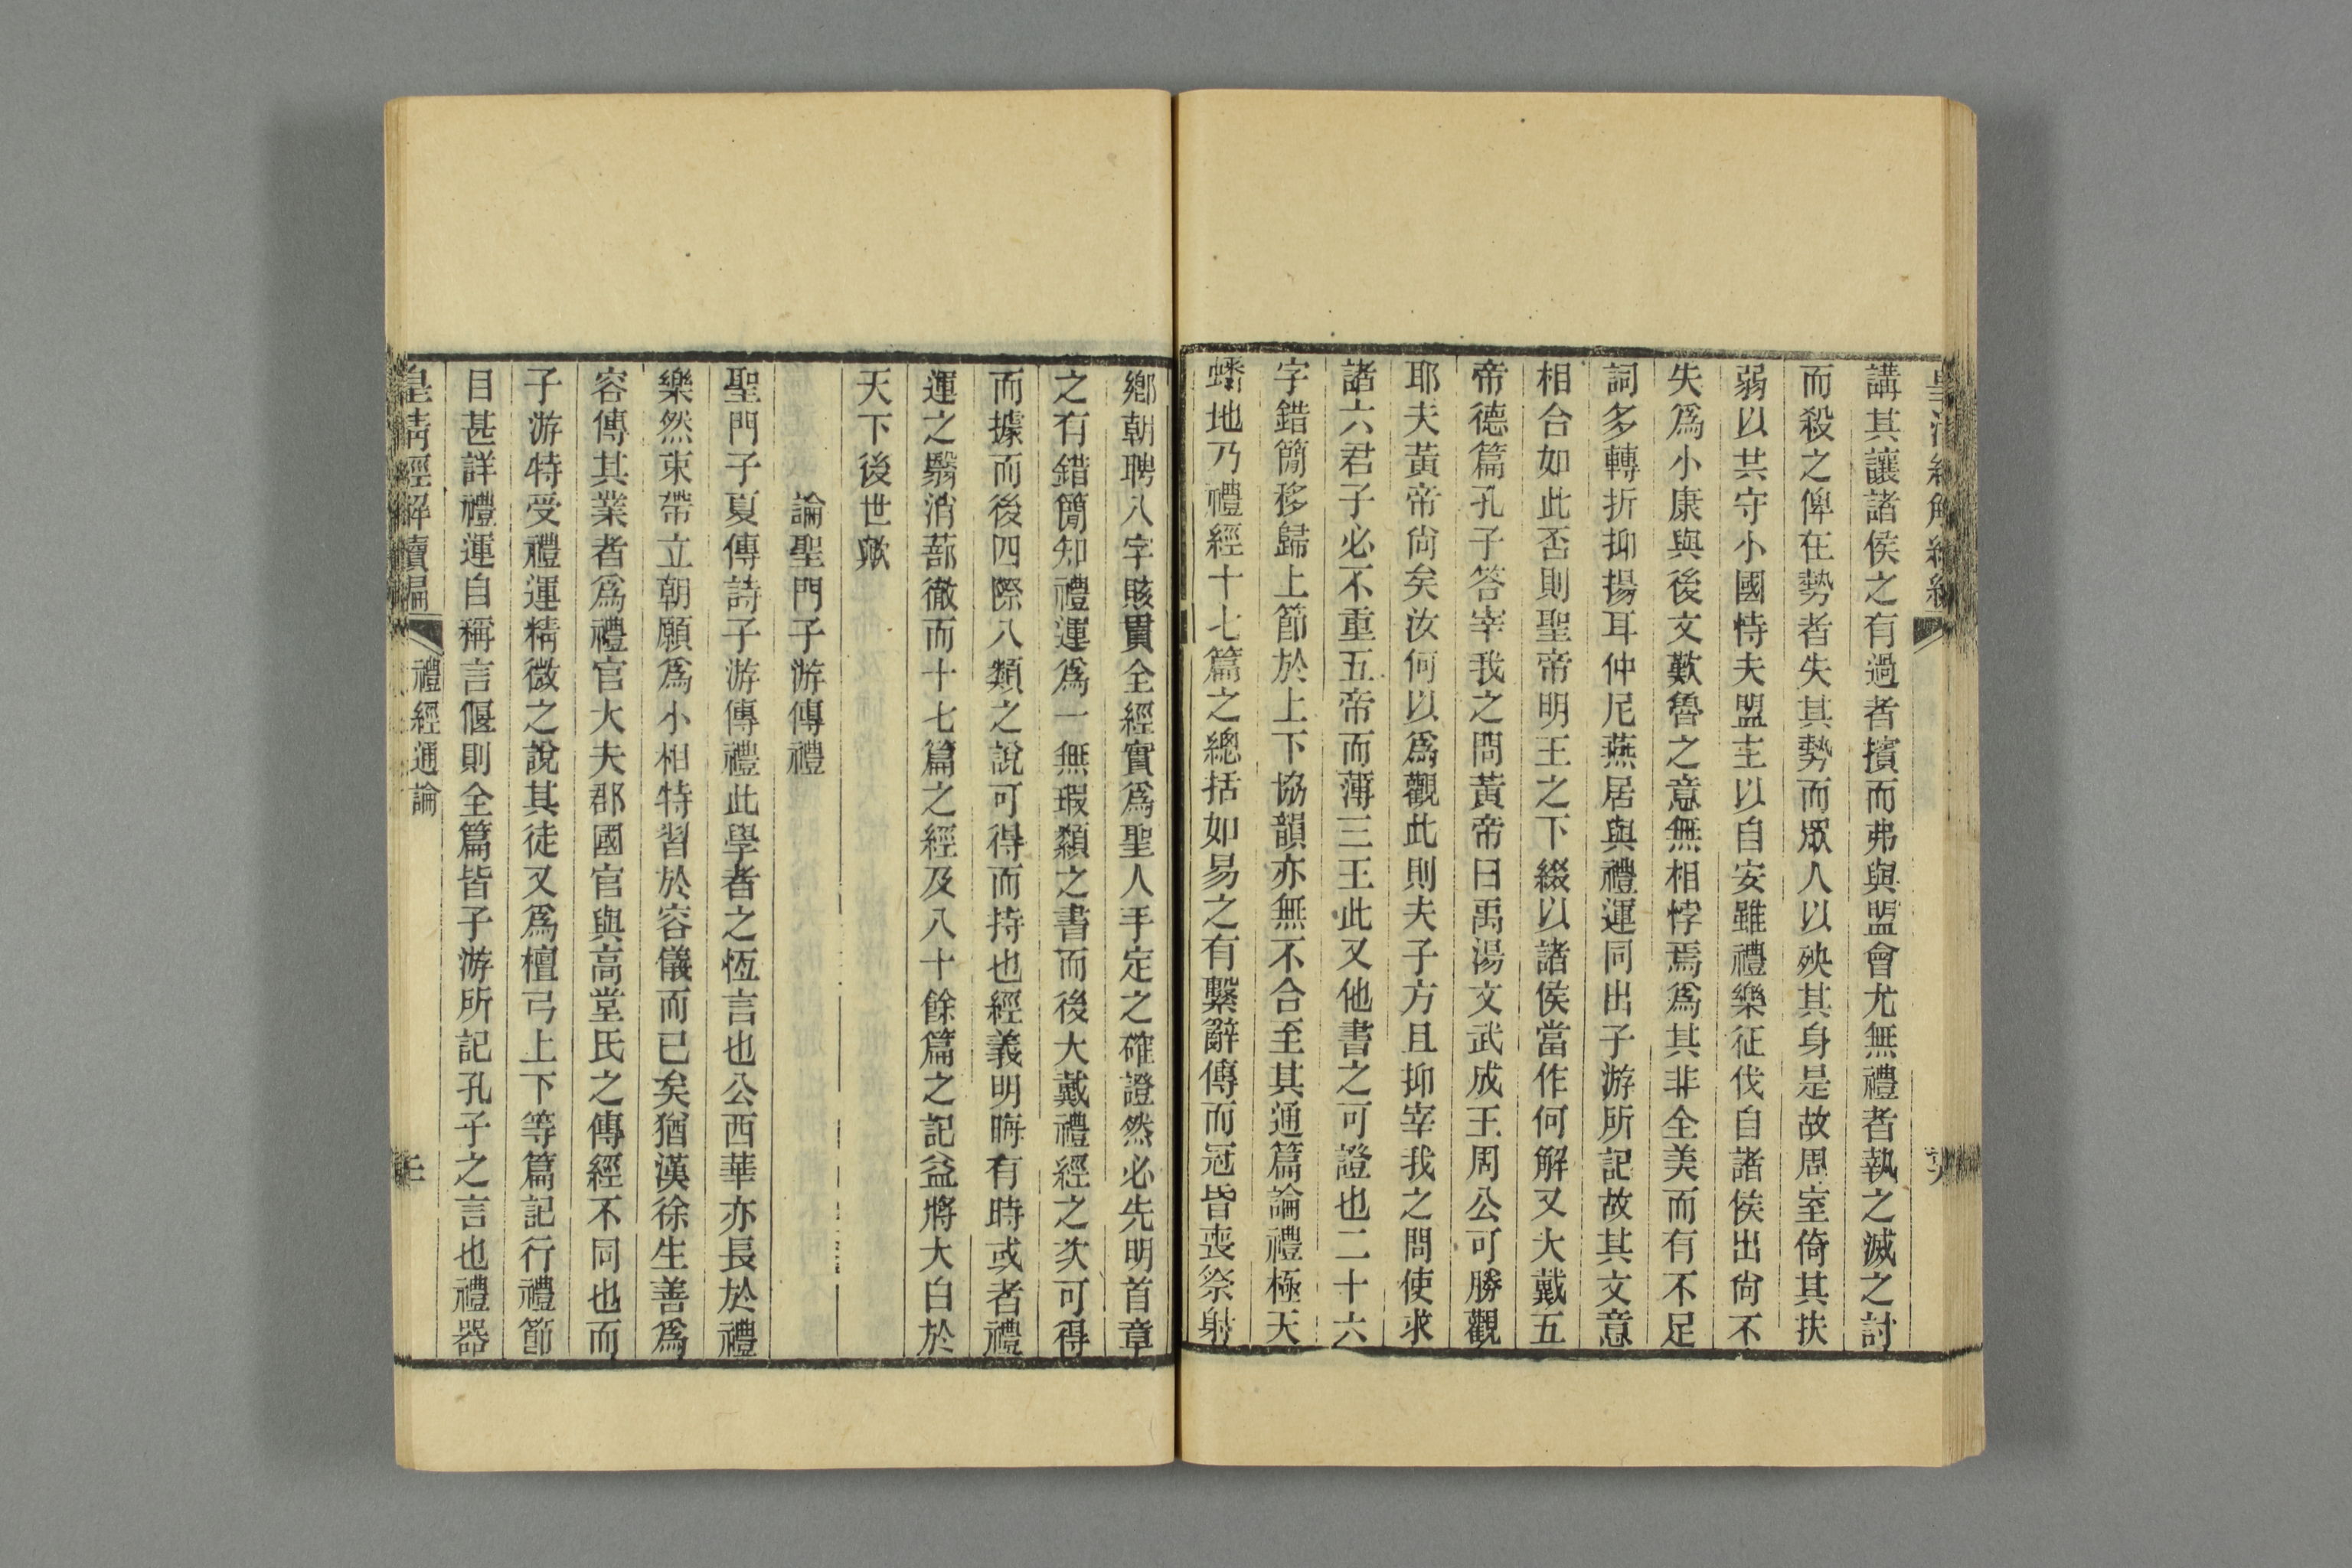 講其讓諸侯之有過者擯而弗與盟會尤無禮者執之滅之討
而殺之俾在勢者失其勢而眾人以殃其身是故周室倚其扶
弱以共守小國恃夫盟主以自安雖禮樂征伐自諸侯出尙不
失爲小康與後文歎魯之意無相悖焉爲其非全美而有不足
詞多轉折抑揚耳仲尼燕居與禮運同出子游所記故其文意
相合如此否則聖帝明王之下綴以諸侯當作何解又大戴五
帝德篇孔子答宰我之問黃帝曰禹湯文武成王周公可勝觀
耶夫黃帝尙矣汝何以爲觀此則夫子方且抑宰我之問使求
諸六君子必不重五帝而薄三王此又他書之可證也二十六
字錯簡移歸上節於上下協韻亦無不合至其通篇論禮極天
蟠地乃禮經十七篇之總括如易之有繫辭傳而冠昏喪祭射
鄉朝聘八字賅貫全經實爲聖人手定之確證然必先明首章
之有錯簡知禮運爲一無瑕纇之書而後大戴禮經之次可得
而據而後四際八類之說可得而持也經義明晦有時或者禮
運之翳消蔀徹而十七篇之經及八十餘篇之記益將大白於
天下後世歟
論聖門子游傳禮
聖門子夏傳詩子游傳禮此學者之恆言也公西華亦長於禮
樂然束帶立朝願爲小相特習於容儀而已矣猶漢徐生善爲
容傳其業者爲禮官大夫郡國官與高堂氏之傳經不同也而
子游特受禮運精微之說其徒又爲檀弓上下等篇記行禮節
目甚詳禮運自稱言偃則全篇皆子游所記孔子之言也禮器
皇清經解續編
禮經通論